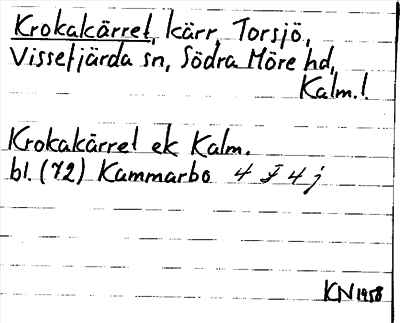 Krokakärret, kärr, Torsjö,
Vissefjärda sn, Södra Möre hd,
Kalm.l.
Krokakärret ek Kalm.
bl. (72) Kammarbo 4 F 4 j
KN 1958